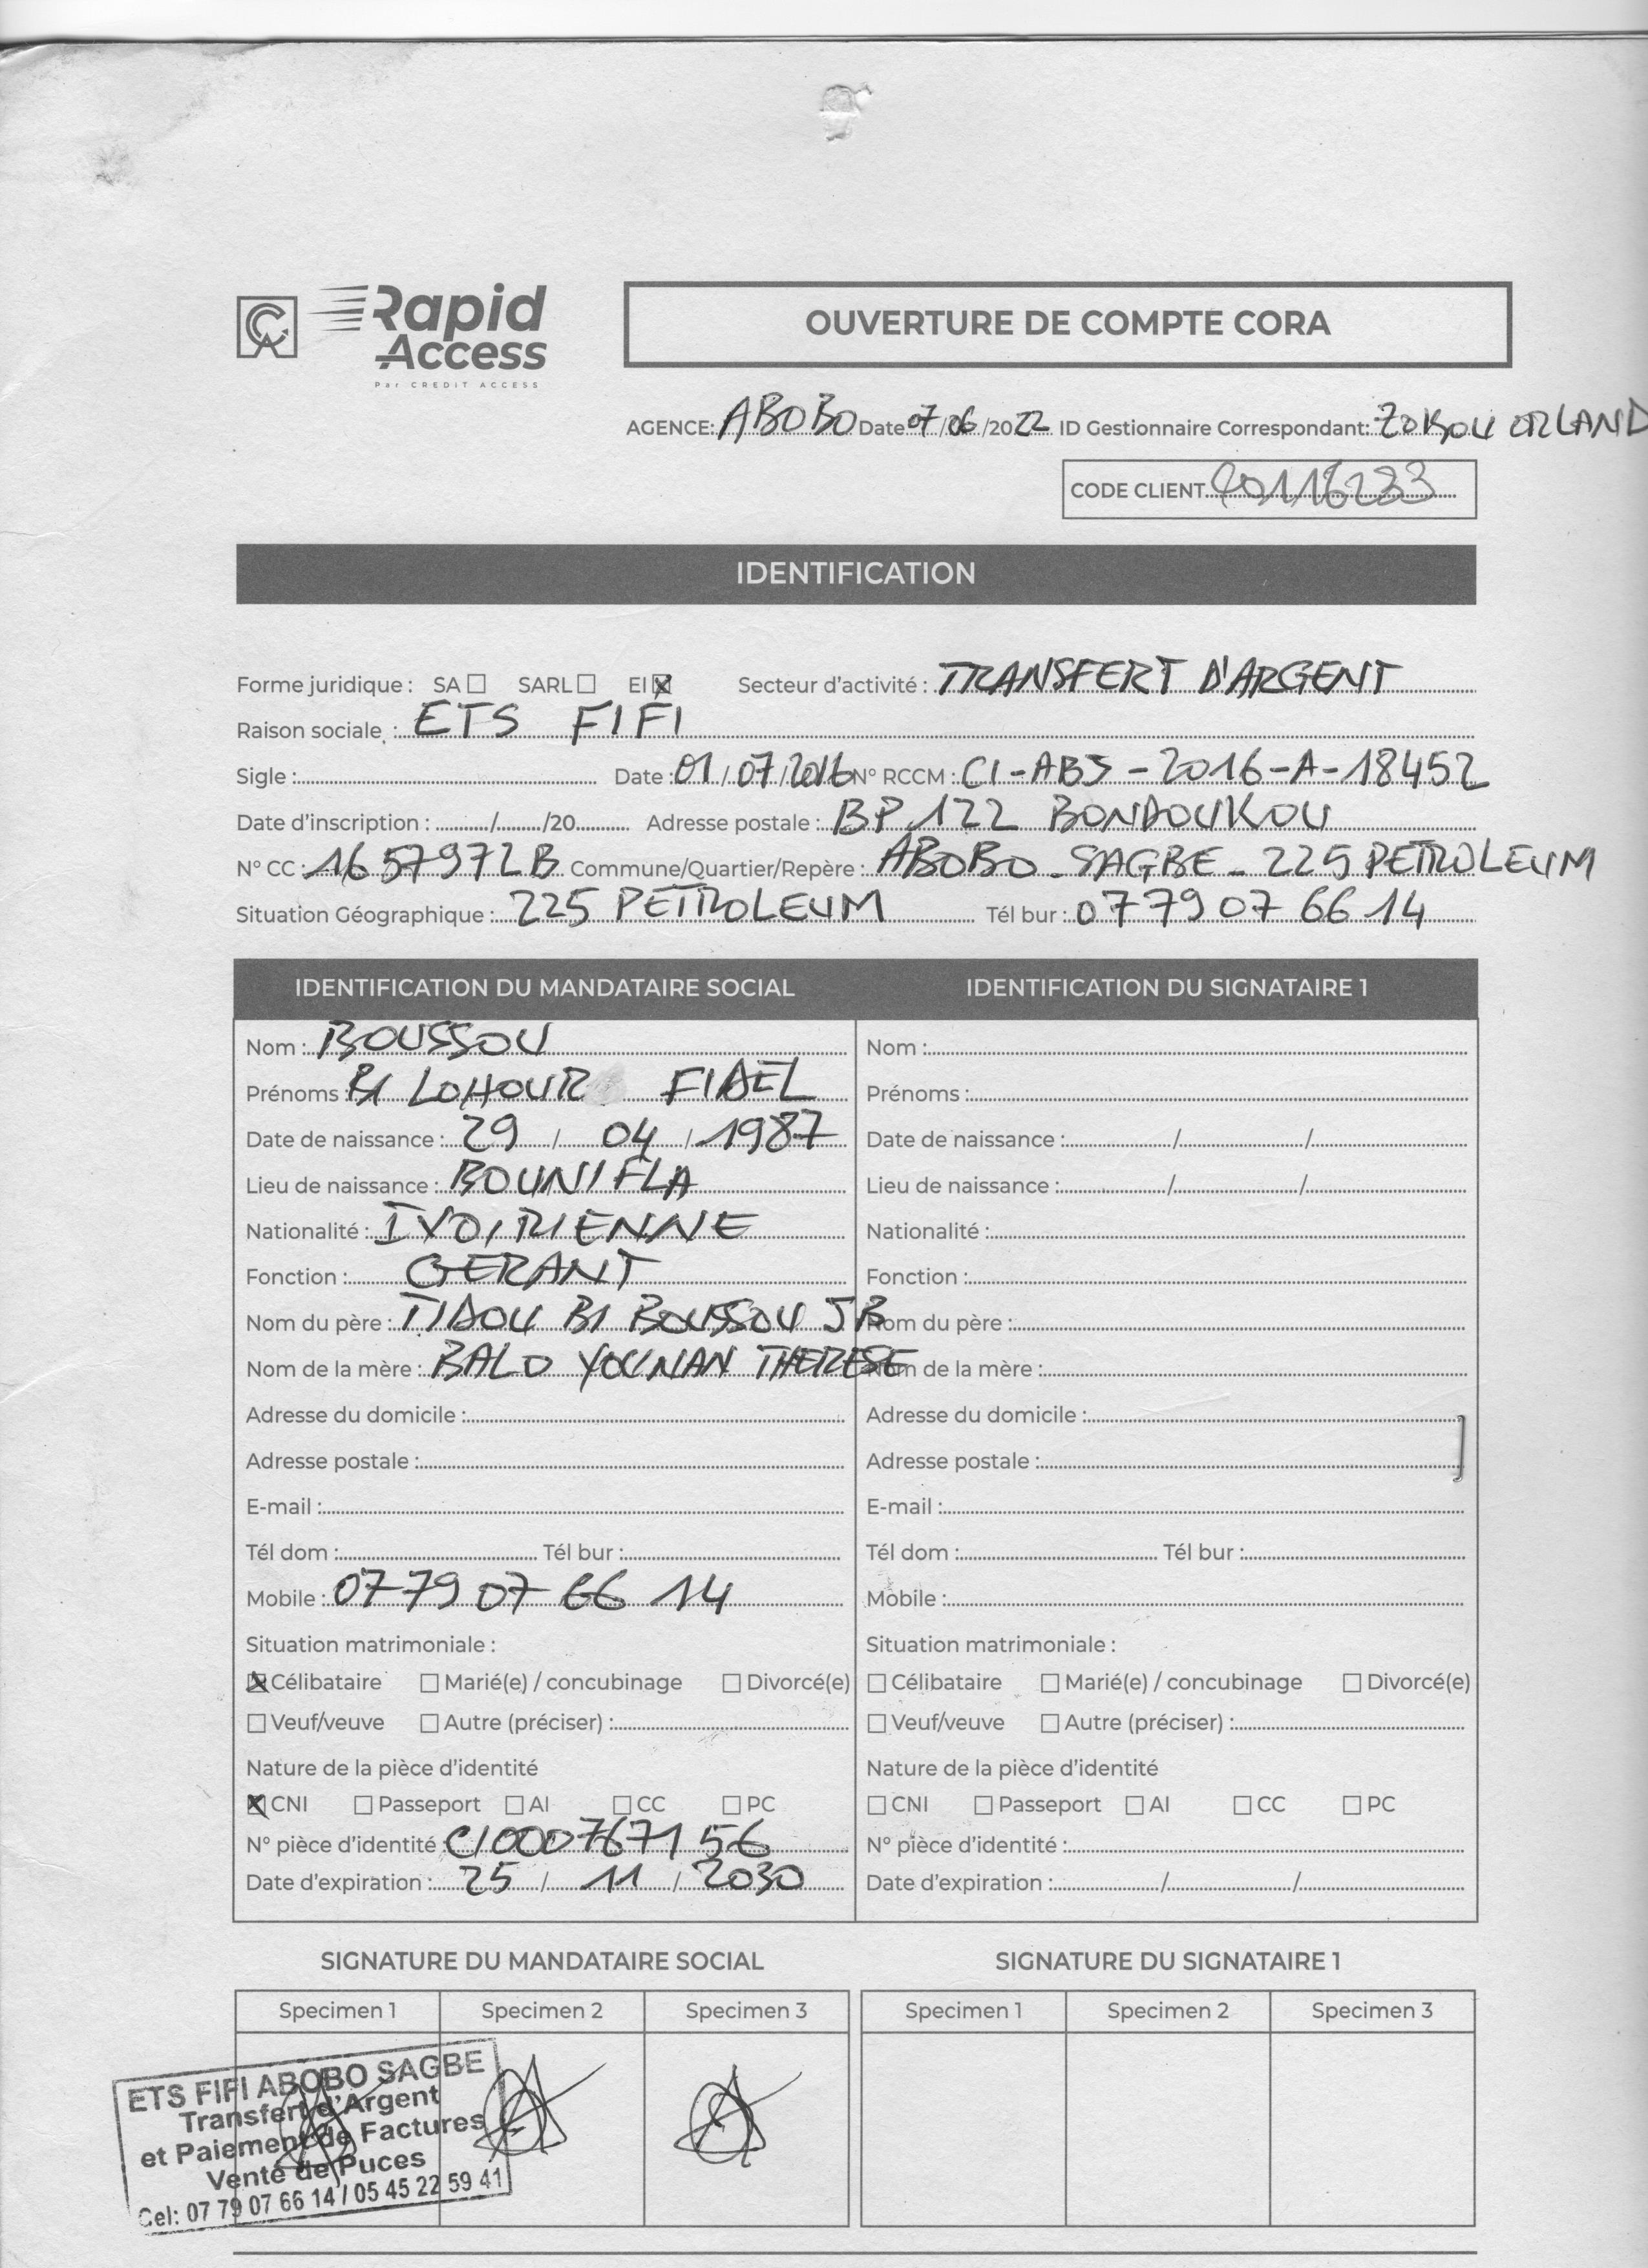 Rapid
Access
Par CREDIT ACCESS
OUVERTURE DE COMPTE CORA
AGENCE: ABOBO Date 07/06/2022 ID Gestionnaire Correspondant: ZOKOU ORLAND
CODE CLIENT
IDENTIFICATION
Forme juridique : SA ☐ SARL ☐ EI ☒ Secteur d'activité : TRANSFERT D'ARGENT
Raison sociale : ETS FIFI
Sigle : Date : 01/07/2016 N° RCCM : CI-ABJ-2016-A-18452
Date d'inscription : / /20 Adresse postale : BP 122 BONDOUKOU
N° CC : 1657972B Commune/Quartier/Repère : ABOBO - SAGBE - 225 PETROLEUM
Situation Géographique : 225 PETROLEUM Tél bur : 07 79 07 66 14
IDENTIFICATION DU MANDATAIRE SOCIAL
Nom : BOUSSOU
Prénoms : BI LOHOUR FIDEL
Date de naissance : 29 / 04 / 1987
Lieu de naissance : BOUNIFLA
Nationalité : IVOIRIENNE
Fonction : GERANT
Nom du père : TIDOU BI BOUSSOU JB
Nom de la mère : BALO YOUNAN THERESE
Adresse du domicile :
Adresse postale :
E-mail :
Tél dom : Tél bur :
Mobile : 07 79 07 66 14
Situation matrimoniale :
☒ Célibataire ☐ Marié(e) / concubinage ☐ Divorcé(e)
☐ Veuf/veuve ☐ Autre (préciser) :
Nature de la pièce d'identité
☒ CNI ☐ Passeport ☐ AI ☐ CC ☐ PC
N° pièce d'identité : CI000767156
Date d'expiration : 25 / 11 / 2030
IDENTIFICATION DU SIGNATAIRE 1
Nom :
Prénoms :
Date de naissance : / /
Lieu de naissance : / /
Nationalité :
Fonction :
Nom du père :
Nom de la mère :
Adresse du domicile :
Adresse postale :
E-mail :
Tél dom : Tél bur :
Mobile :
Situation matrimoniale :
☐ Célibataire ☐ Marié(e) / concubinage ☐ Divorcé(e)
☐ Veuf/veuve ☐ Autre (préciser) :
Nature de la pièce d'identité
☐ CNI ☐ Passeport ☐ AI ☐ CC ☐ PC
N° pièce d'identité :
Date d'expiration : / /
SIGNATURE DU MANDATAIRE SOCIAL
Specimen 1 Specimen 2 Specimen 3
ETS FIFI ABOBO SAGBE
Transfert d'Argent
et Paiement de Factures
Vente de Puces
Cel: 07 79 07 66 14 / 05 45 22 59 41
SIGNATURE DU SIGNATAIRE 1
Specimen 1 Specimen 2 Specimen 3